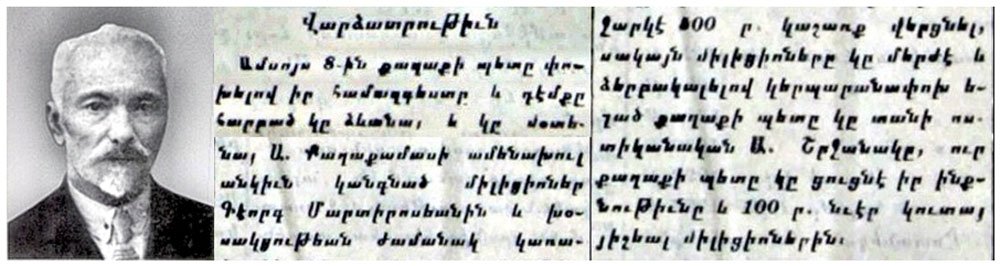 Վարձատրութիւն
Ամսոյս 8-ին քաղաքի պետը փո-
խելով իր համազգեստը և դէմքը
հարբած կը ձևանա, և կը մօտե-
նա, Ա. Քաղաքամասի ամենախուլ
անկիւն կանգնած միլիցիոներ
Գէորգ Մարտիրոսեանին և խօ-
սակցութեան ժամանակ կառա-
ջարկէ 400 ր. կաշառք վերցնել,
սակայն միլիցիոները կը մերժէ և
ձերբակալելով կերպարանափոխ ե-
ղած քաղաքի պետը կը տանի ոս-
տիկանական Ա. Շրջանակը, ուր
քաղաքի պետը կը ցուցնէ իր ինք-
նութիւնը և 100 ր. նուէր կուտայ
յիշեալ միլիցիոներին։